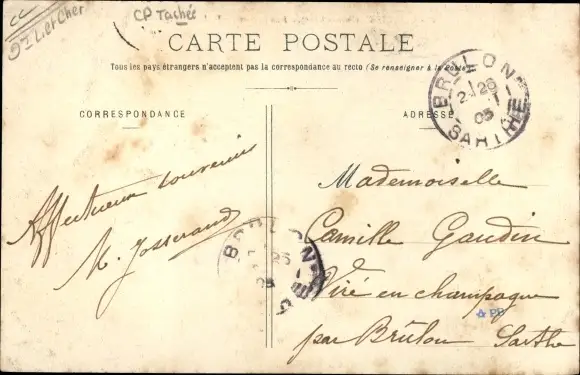 CC
CP Tachée
CARTE POSTALE
Tous les pays étrangers n'acceptent pas la correspondance au recto (Se renseigner à la Poste)
CORRESPONDANCE
ADRESSE
BRULON
26
05
SARTHE
Affectueux souvenirs
M. Josserand
BRULON
05
Mademoiselle
Camille Gaudin
Viré en champagne
par Brûlon Sarthe
PB